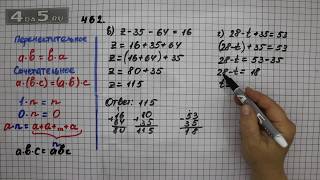 4DS.RU
462.
Переместительное
a·b = b·a
Сочетательное
a·(b·c) = (a·b)·c
1·n = n
0·n = 0
a·n =
a·b·c =
в) z-35-64=16
z = 16+35+64
z = (16+64)+35
z = 80+35
z = 115
Ответ: 115
+16
64
80
+80
35
115
г) 28-t+35=53
(28-t)+35=53
28-t = 53-35
28-t = 18
-53
35
18